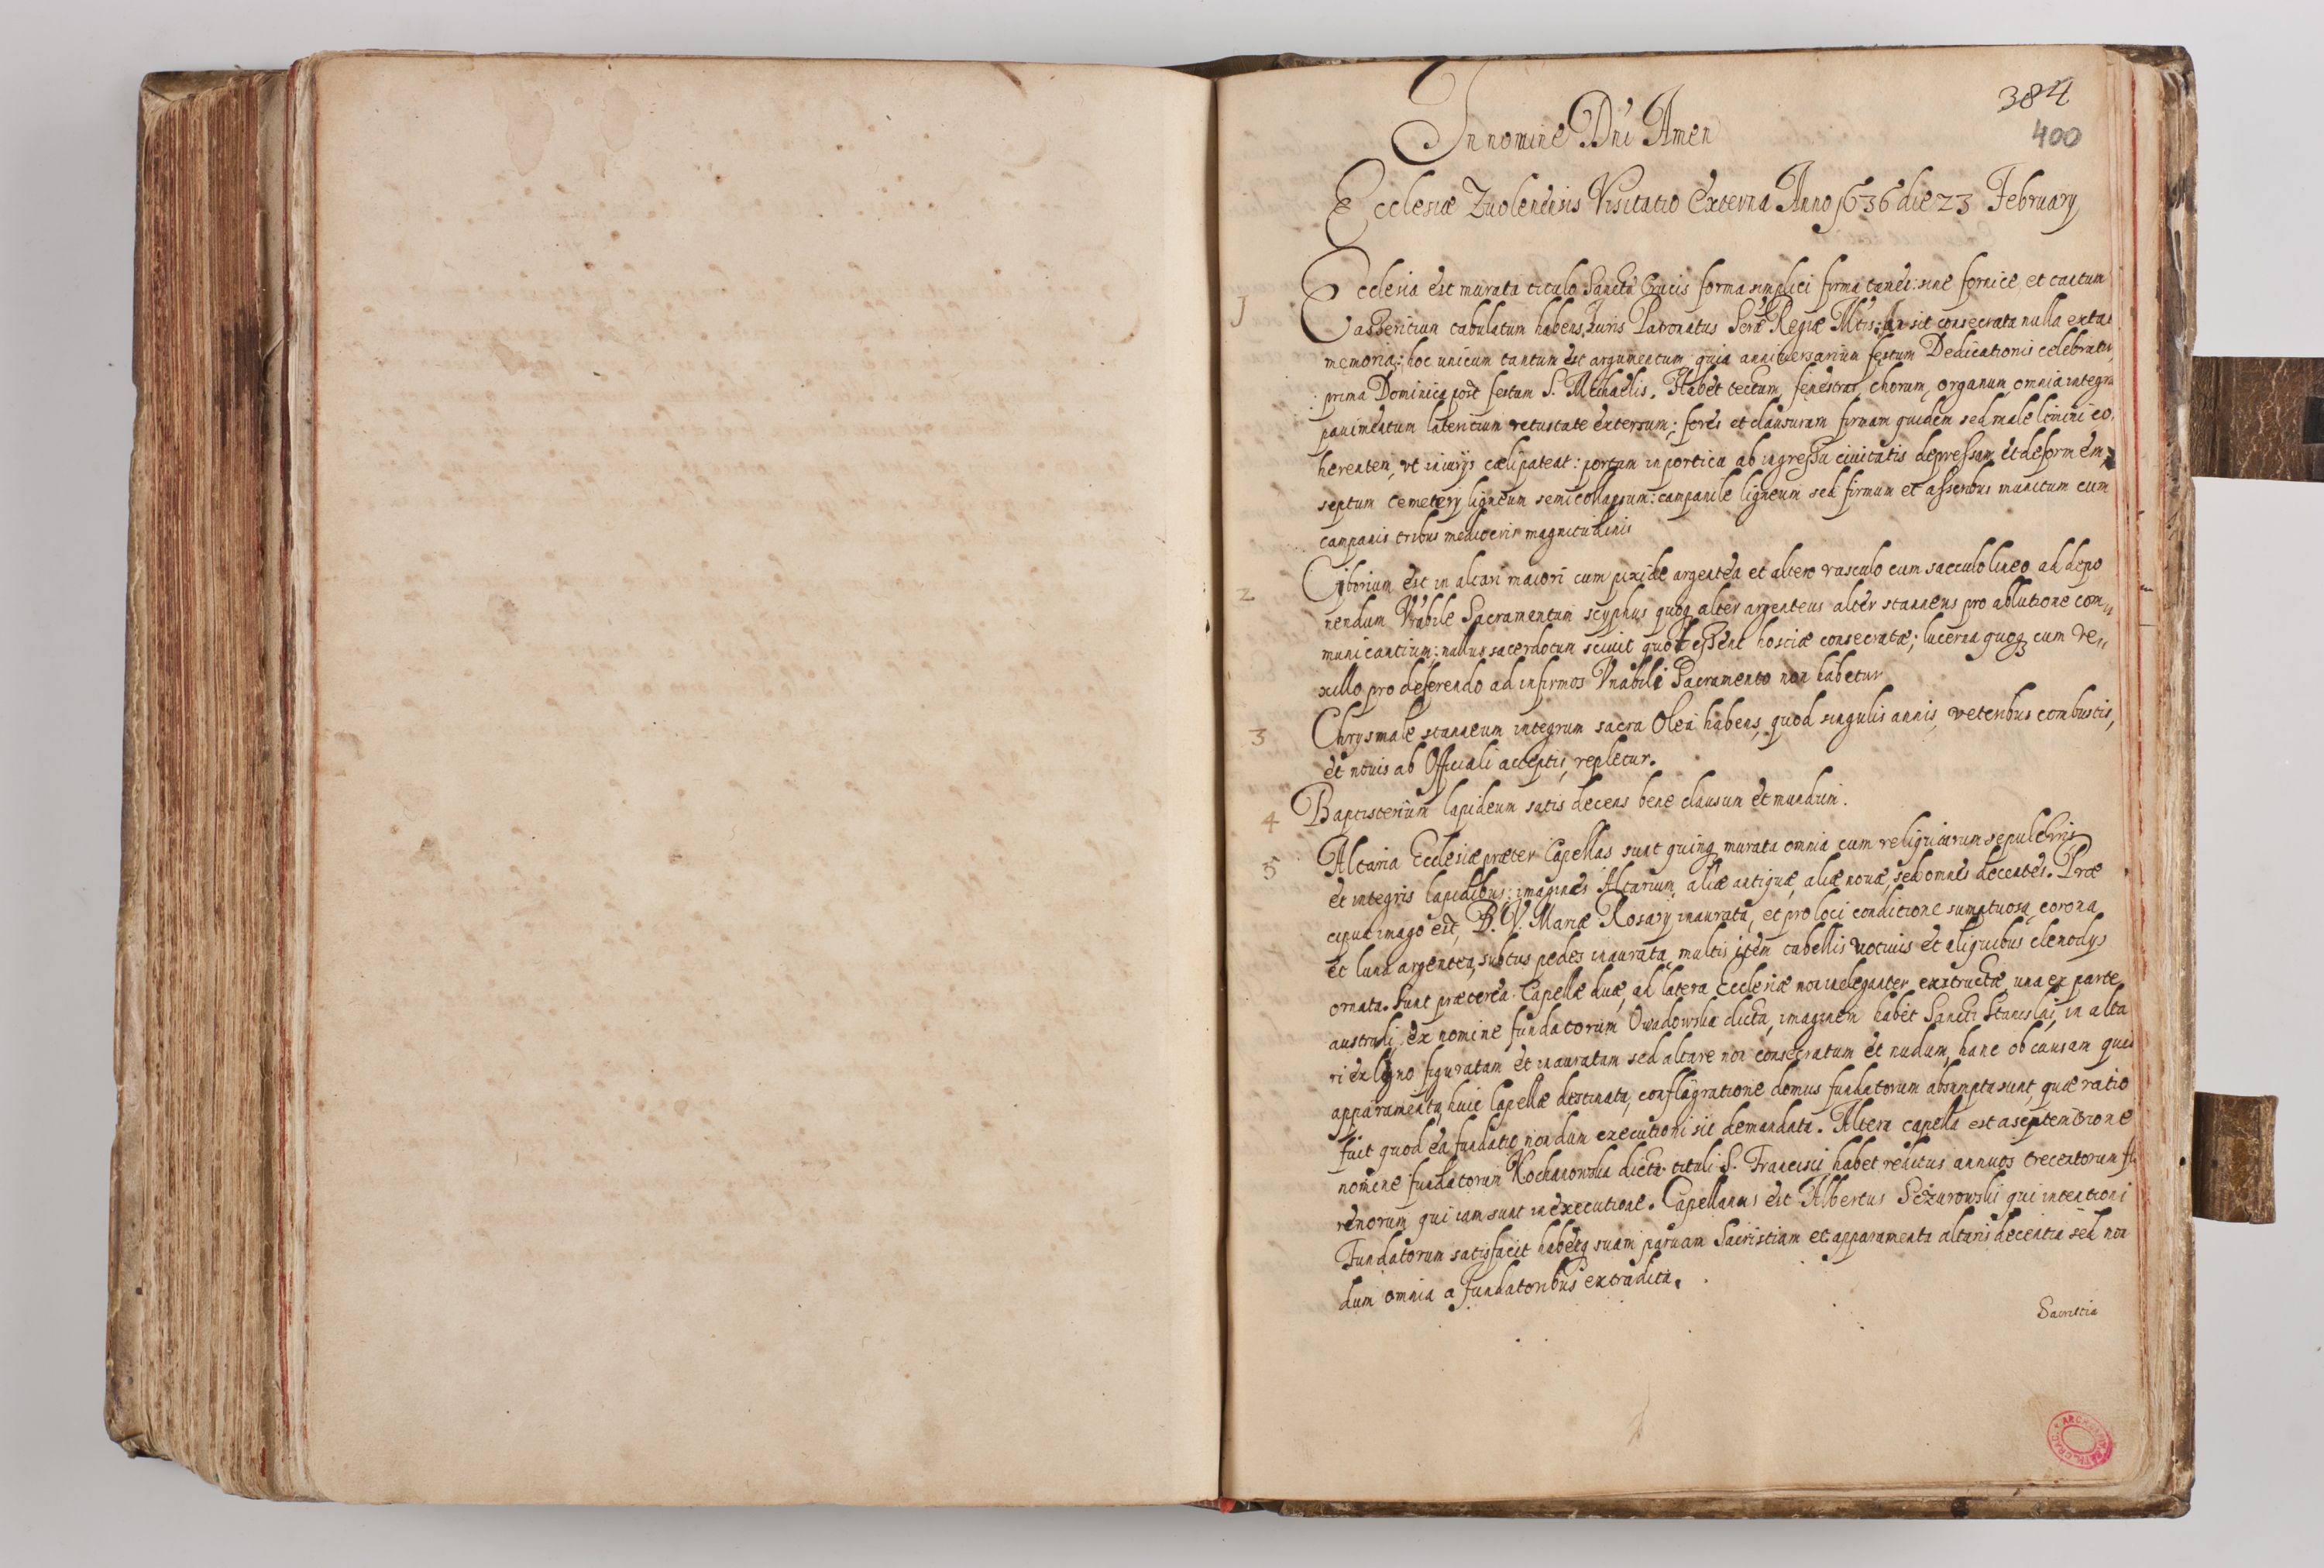 384
400
In nomine Dni Amen
Ecclesiæ Zuolenensis Visitatio Externa Anno 1636 die 23 February
1 Ecclesia est murata titulo Sanctæ Crucis forma simplici firma tamen: sine fornice, et tantum
asseritium tabulatum habens, Iuris Patronatus Seræ Regiæ Mtis: An sit consecrata nulla extat
memoria: hoc unicum tantum est argumentum quia anniuersarium festum Dedicationis celebratur
prima Dominica post festum S. Michaelis. Habet tectum, fenestras, chorum, organum, omnia integra
pauimentum latericium vetustate extersum; fores et clausuram firmam quidem sed male limini co,
herentem, vt iniurys cæli pateat: portam in portica ab ingressu ciuitatis depressam et deformem,
septum cemetery ligneum semicollapsum: campanile ligneum sed firmum et asseribus munitum cum
campanis tribus mediocris magnitudinis
2 Ciborium est in altari maiori cum pixide argentea et altero vasculo cum sacculo lineo ad depo
nendum Vrabile Sacramentum scyphus quoq alter argenteus alter stanneus pro ablutione com„
municantium: nullus sacerdotum sciuit quot essent hostiæ consecratæ; lucerna quoq cum ve„
xillo pro deferendo ad infirmos Vnabili Sacramento non habetur
3 Chrysmale stanneum integrum sacra Olea habens, quod singulis annis, veteribus combustis,
et nouis ab Officiali acceptis, repletur.
4 Baptisterium lapideum satis decens bene clausum et mundum.
5 Altaria Ecclesiæ præter Capellas sunt quinq murata omnia cum reliquiarum sepulchris
et integris lapidibus: imagines Altarium, aliæ antiquæ, aliæ nouæ, sed omnes decentes. Præ
cipua imago est, B. V. Mariæ Rosary inaurata, et pro loci conditione sumptuosa, corona
et luna argentea, subtus pedes inaurata, multis item tabellis votiuis et aliquibus clenodys
ornata. Sunt præterea Capellæ duæ, ad latera Ecclesiæ non ineleganter exstructæ, una ex parte
australi, ex nomine fundatorum Owadowska dicta, imaginem habet Sancti Stanislai, in alta
ri ex ligno figuratam et inauratam sed altare non consecratum et nudum, hanc ob causam quia
apparamenta huic Capellæ destinata, conflagratione domus fundatorum absumpta sunt, quæ ratio
fuit quod ea fundatio nondum executioni sit demandata. Altera capella est a septemtrione
nomine fundatorum Kochanowska dicta tituli S. Francisci habet reditus annuos trecentorum flo
renorum qui iam sunt in executione. Capellanus est Albertus Sczurowski qui intentioni
Fundatorum satisfacit habetq suam paruam Sacristiam et apparamenta altaris decentia sed non
dum omnia a fundatoribus extradita.
Sacristia